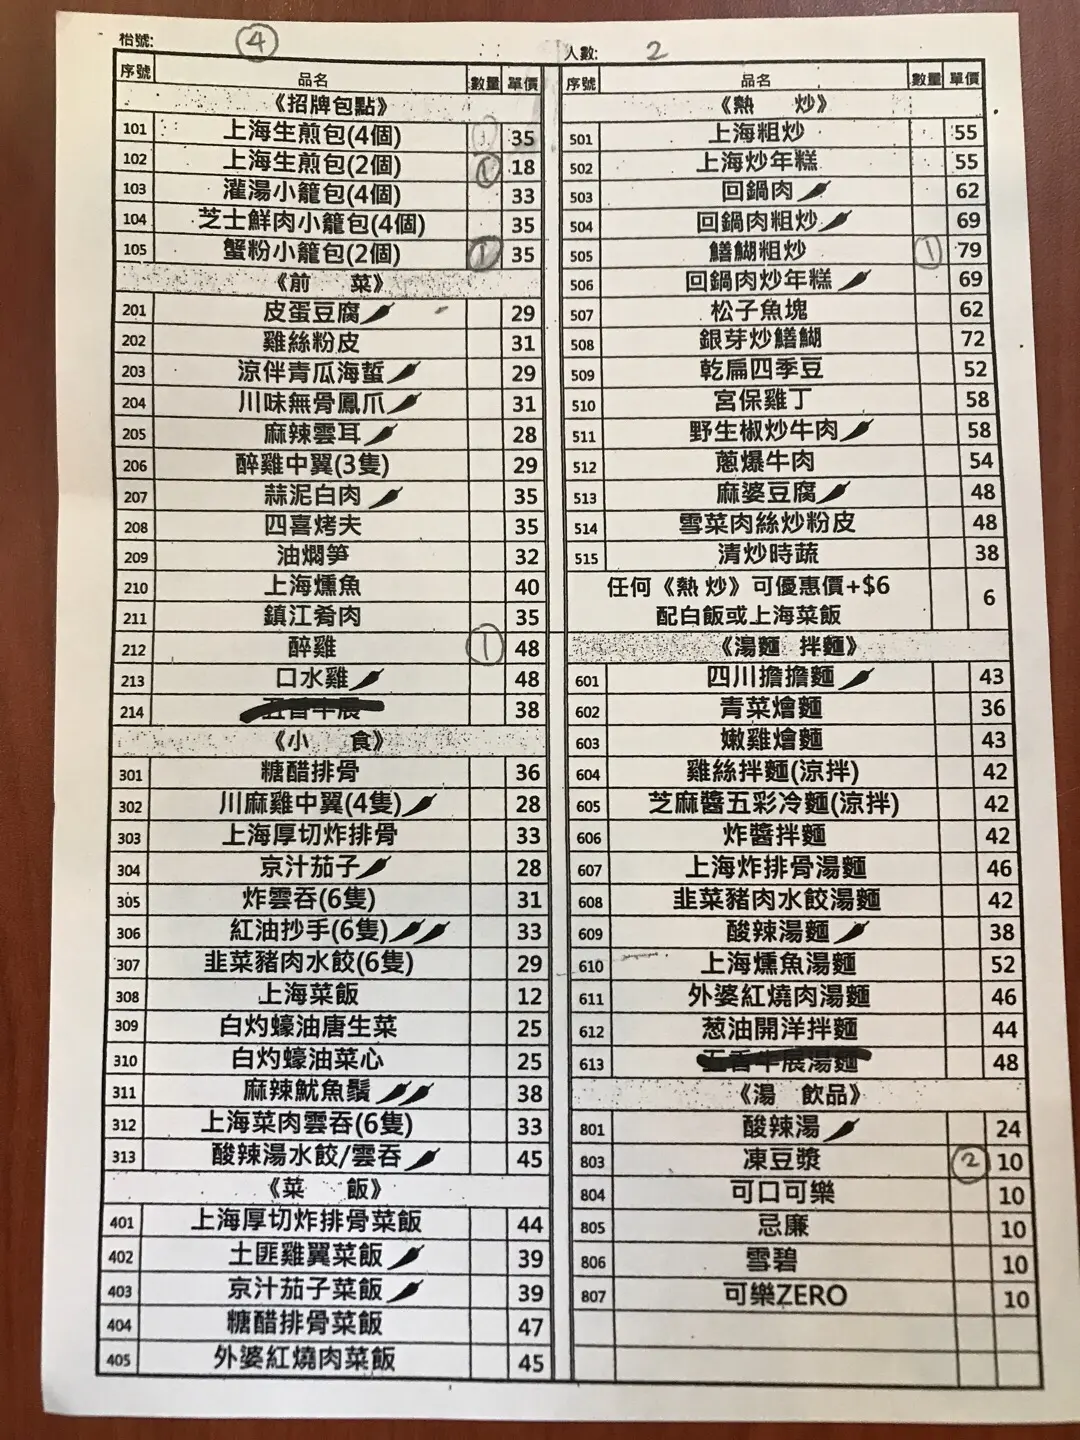 枱號: 4
人數: 2
序號 品名 數量 單價
《招牌包點》
101 上海生煎包(4個) 35
102 上海生煎包(2個) 1 18
103 灌湯小籠包(4個) 33
104 芝士鮮肉小籠包(4個) 35
105 蟹粉小籠包(2個) 1 35
《前 菜》
201 皮蛋豆腐 29
202 雞絲粉皮 31
203 涼伴青瓜海蜇 29
204 川味無骨鳳爪 31
205 麻辣雲耳 28
206 醉雞中翼(3隻) 29
207 蒜泥白肉 35
208 四喜烤夫 35
209 油燜笋 32
210 上海燻魚 40
211 鎮江肴肉 35
212 醉雞 1 48
213 口水雞 48
214 五香牛展 38
《小 食》
301 糖醋排骨 36
302 川麻雞中翼(4隻) 28
303 上海厚切炸排骨 33
304 京汁茄子 28
305 炸雲吞(6隻) 31
306 紅油抄手(6隻) 33
307 韭菜豬肉水餃(6隻) 29
308 上海菜飯 12
309 白灼蠔油唐生菜 25
310 白灼蠔油菜心 25
311 麻辣魷魚鬚 38
312 上海菜肉雲吞(6隻) 33
313 酸辣湯水餃/雲吞 45
《菜 飯》
401 上海厚切炸排骨菜飯 44
402 土匪雞翼菜飯 39
403 京汁茄子菜飯 39
404 糖醋排骨菜飯 47
405 外婆紅燒肉菜飯 45
序號 品名 數量 單價
《熱 炒》
501 上海粗炒 55
502 上海炒年糕 55
503 回鍋肉 62
504 回鍋肉粗炒 69
505 鱔糊粗炒 1 79
506 回鍋肉炒年糕 69
507 松子魚塊 62
508 銀芽炒鱔糊 72
509 乾扁四季豆 52
510 宮保雞丁 58
511 野生椒炒牛肉 58
512 蔥爆牛肉 54
513 麻婆豆腐 48
514 雪菜肉絲炒粉皮 48
515 清炒時蔬 38
任何《熱 炒》可優惠價+$6 6
配白飯或上海菜飯
《湯麵 拌麵》
601 四川擔擔麵 43
602 青菜燴麵 36
603 嫩雞燴麵 43
604 雞絲拌麵(涼拌) 42
605 芝麻醬五彩冷麵(涼拌) 42
606 炸醬拌麵 42
607 上海炸排骨湯麵 46
608 韭菜豬肉水餃湯麵 42
609 酸辣湯麵 38
610 上海燻魚湯麵 52
611 外婆紅燒肉湯麵 46
612 葱油開洋拌麵 44
613 五香牛展湯麵 48
《湯 飲品》
801 酸辣湯 24
803 凍豆漿 2 10
804 可口可樂 10
805 忌廉 10
806 雪碧 10
807 可樂ZERO 10